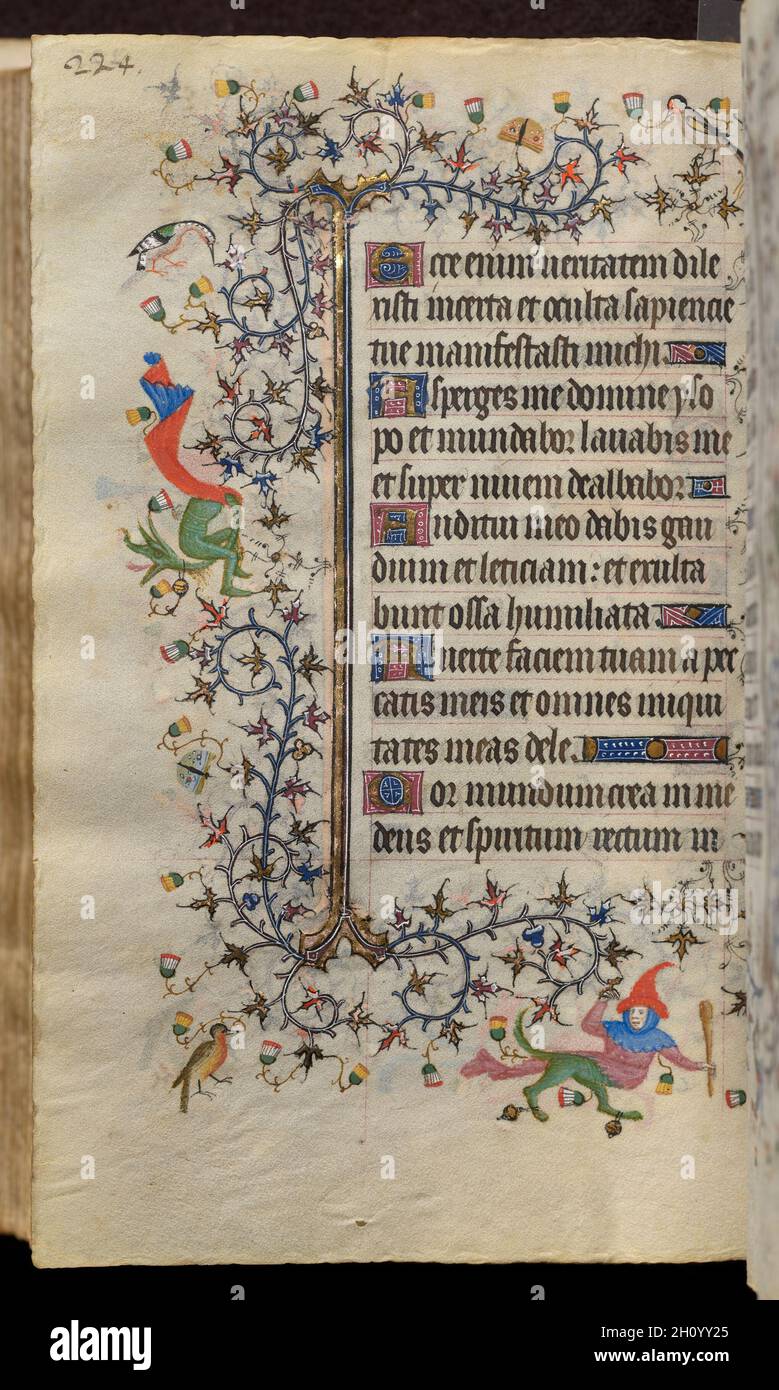 224.
Ecce enim veritatem dile
xisti incerta et oculta sapiencie
tue manifestasti michi
Asperges me domine yso
po et mundabor lavabis me
et super nivem dealbabor
Auditui meo dabis gau
dium et leticiam: et exulta
bunt ossa humiliata
Averte faciem tuam a pec
catis meis et omnes iniqui
tates meas dele
Cor mundum crea in me
deus et spiritum rectum in
alamy
alamy
Image ID: 2H0YY25
www.alamy.com